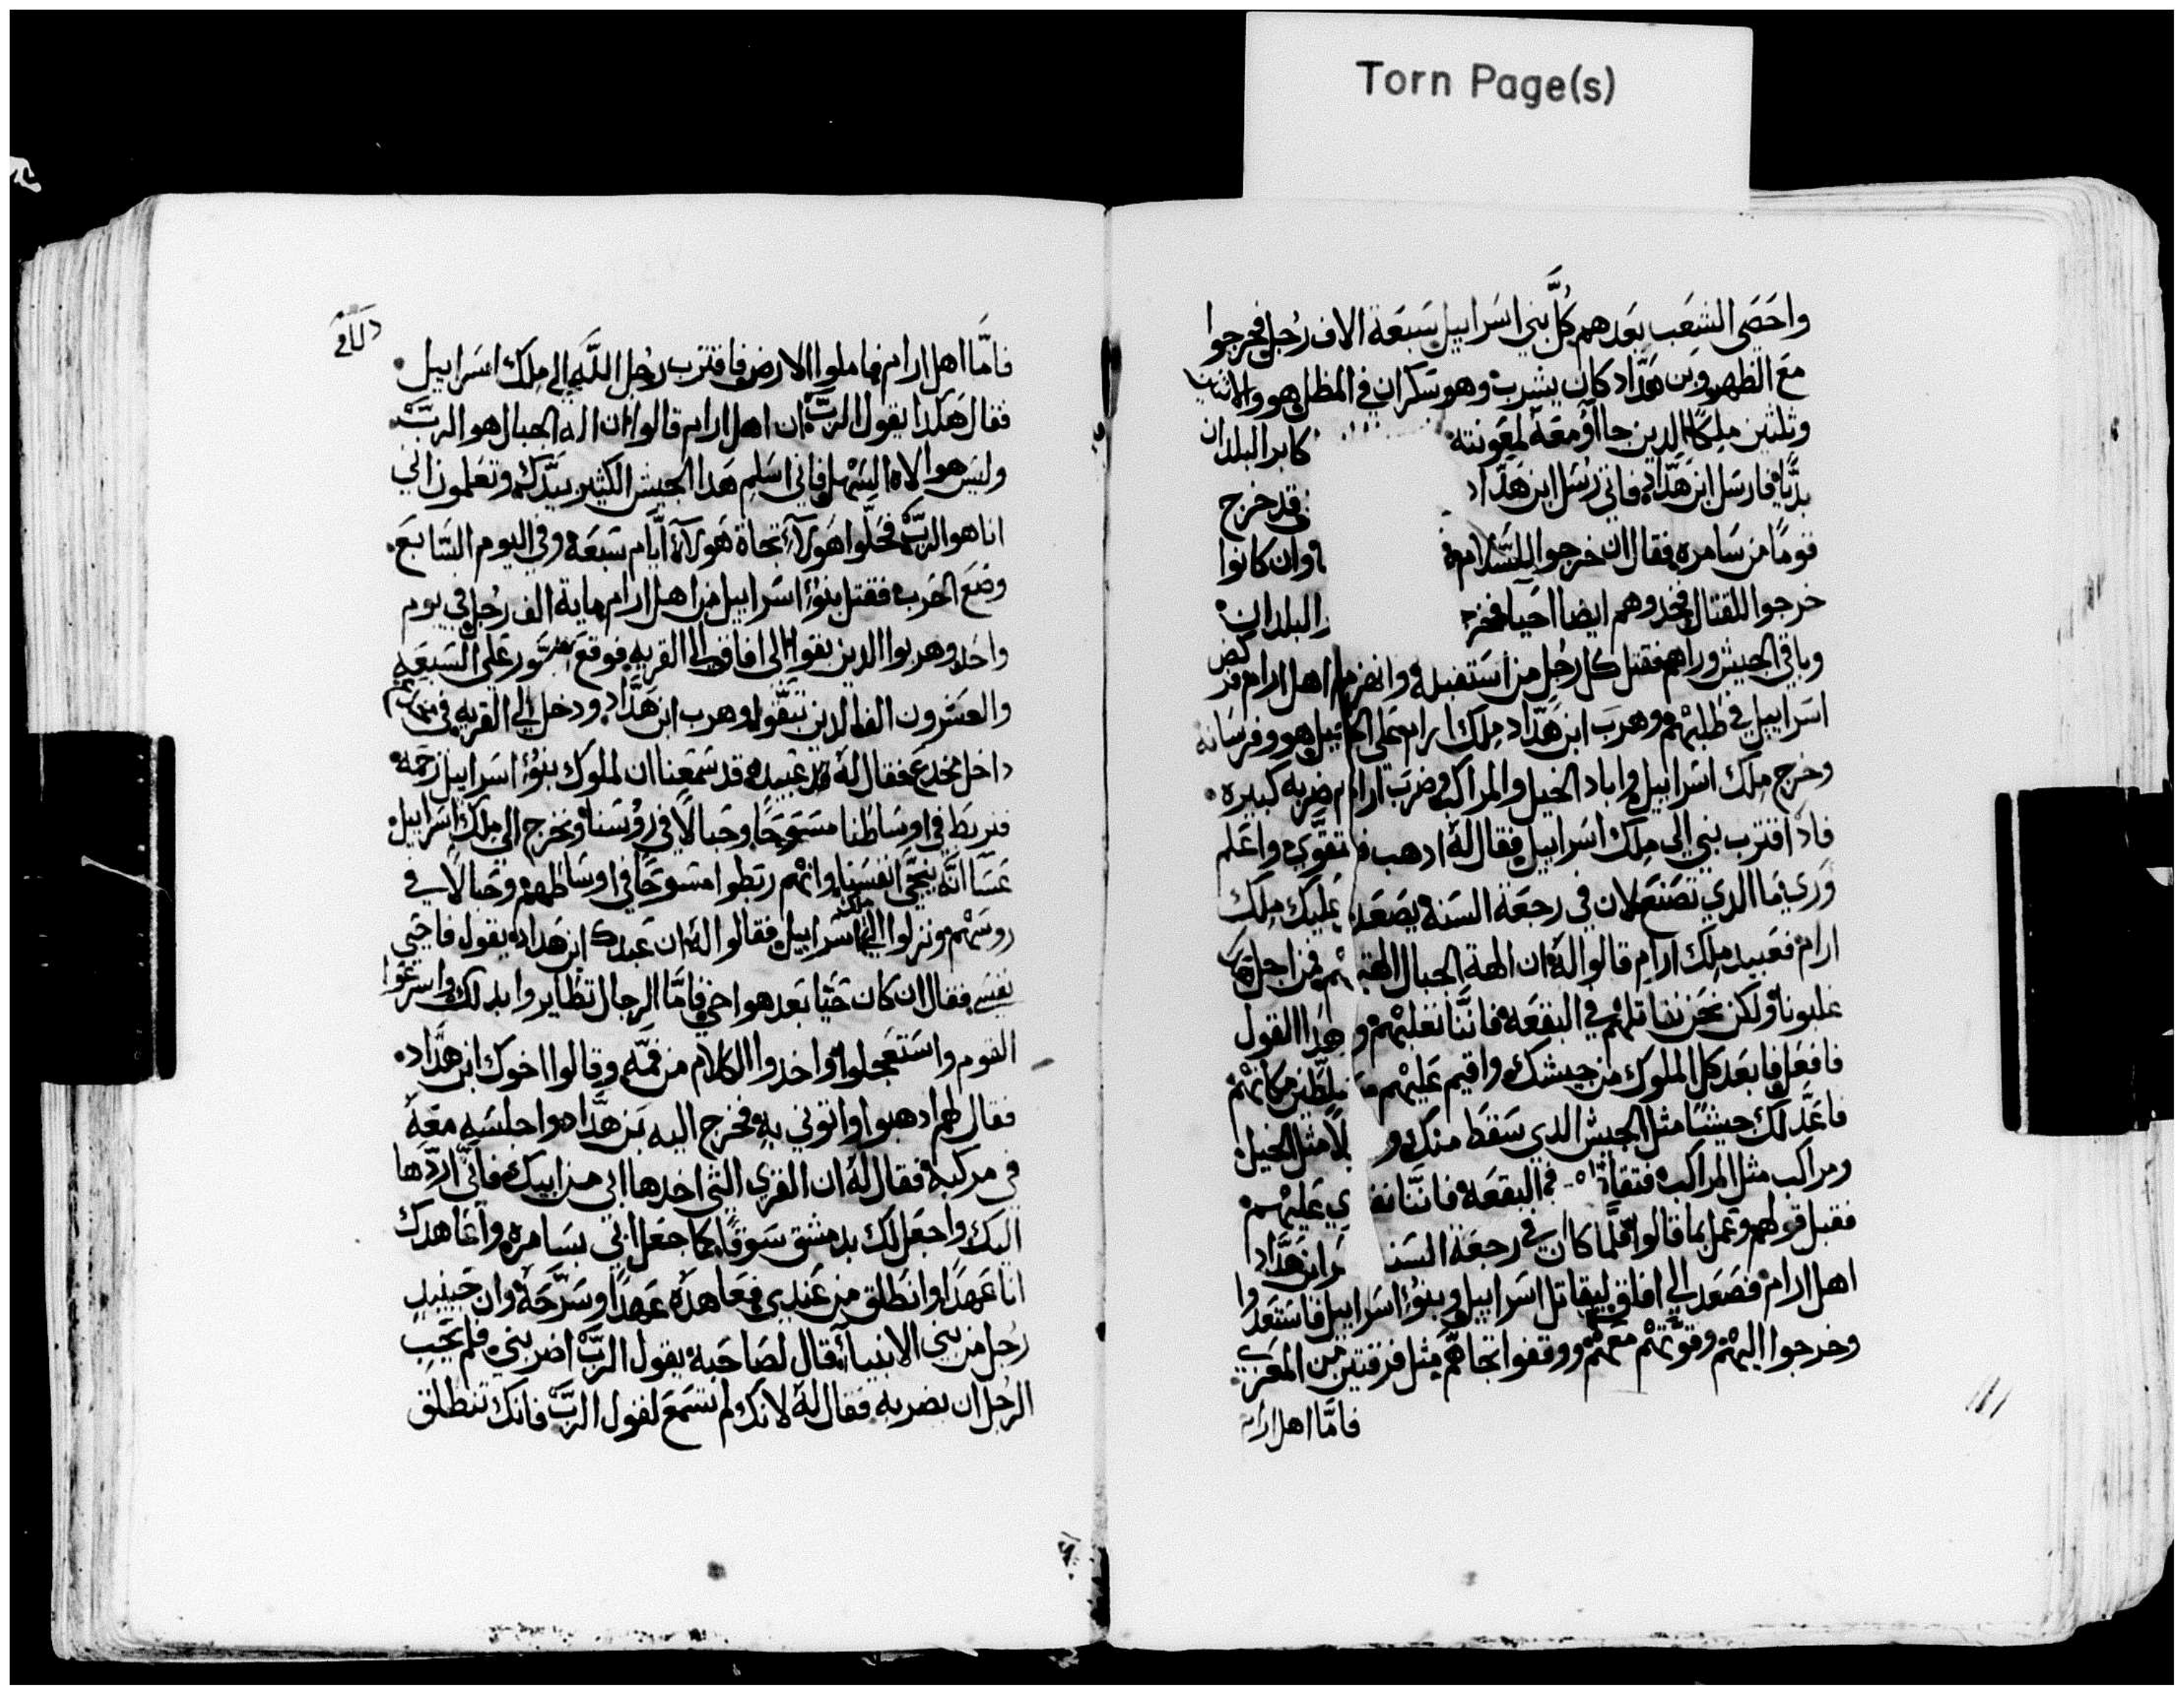 Torn Page(s)
واحصى الشعب بعدهم كل بني اسراييل سبعة الاف رجل فخرجوا
مع الظهر وبن هداد كان يشرب وهو سكران في المظل هو والاثنين
وثلثين ملكا الدين جاآو معه لمعونته كابر البلدان
بديا فارسل ابن هداد فاتى رسل ابن هداد قد خرج
قوما من سامره فقال ان خرجوا للسلام وان كانوا
خرجوا للقتال فخدوهم ايضا احيا فخر البلدان
وباقي الجيش وراهم فقتل كل رجل من استقبله وانهزم اهل ارام فركض
اسراييل في طلبهم وهرب ابن هداد ملك ارام على الخيل هو وفرسانه
وخرج ملك اسراييل واباد الخيل والمراكب وضرب ارام ضربه كبيره
فاد اقترب نبي الى ملك اسراييل فقال له ادهب فتقوى واعلم
ورى ما الدي تصنع لان في رجعة السنة يصعد عليك ملك
ارام فعبيد ملك ارام قالوا له ان الهة الجبال الهتهم فمن اجل
غلبونا ولكن نحن نقاتلهم في البقعه فاننا نغلبهم وهدا القول
فافعل فابعد كل الملوك من جيشك واقيم عليهم سلاطين مكانهم
فاعد لك جيشا مثل الجيش الدي سقط منك و لا مثل الخيل
ومراكب مثل المراكب فتقا في البقعه فاننا نقوي عليهم
فقبل قولهم وعمل بما قالوا فلما كان في رجعة السنـ ابن هداد
اهل ارام فصعد الى افاق ليقاتل اسراييل وبنوا اسراييل فاستعدوا
وخرجوا اليهم وقوتهم معهم ووقفوا تجاههم مثل فرقتين من المعزي
فاما اهل ارام
فاما اهل ارام فاملوا الارض فاقترب رجل الله الى ملك اسراييل
فقال هكدا يقول الرب ان اهل ارام قالوا ان اله الجبال هو الرب
وليس هو الاه السهل فاني اسلم هدا الجيش الكثير بيدك وتعلموا اني
انا هو الرب فحلوا هولآء تجاه هولآء ايام سبعه وفي اليوم السابع
وضع الحرب فقتل بنوا اسراييل من اهل ارام ماية الف رجل في يوم
واحد وهربوا الدين بقوا الى افاق الى القريه فوقع السور على السبعه
والعشرون الف الدين تبقوا وهرب ابن هداد ودخل الى القريه في
داخل مخدع فقال له عبيده قد سمعنا ان لملوك بنوا اسراييل رحمه
فنربط في اوساطنا مسوحا وحبالا في روسنا ونخرج الى ملك اسراييل
عسا انه ينجي انفسنا وانهم ربطوا مسوحا في اوساطهم وحبالا في
روسهم ونزلوا الى ملك اسراييل فقالوا له ان عبدك ابن هداد يقول فاحيي
نفسي فقال ان كان حيا بعد هو اخي فاما الرجال تظايروا بدلك واسرعوا
القوم واستعجلوا واخدوا الكلام من فمه وقالوا اخوك ابن هداد
فقال لهم ادهبوا واتوني به فخرج اليه بن هداد واجلسه معه
في مركبه فقال له ان القرى التي اخدها ابي من ابيك فاني اردها
اليك واجعل لك بدمشق سوقا كما جعل ابي بسامره واعاهدك
انا عهدا وانطلق من عندي فعاهده عهدا وسرحه وان حينيد
رجل من بني الانبيا قال لصاحبه يقول الرب اضربني فلم يحب
الرجل ان يضربه فقال له لانك لم تسمع لقول الرب فانك تنطلق